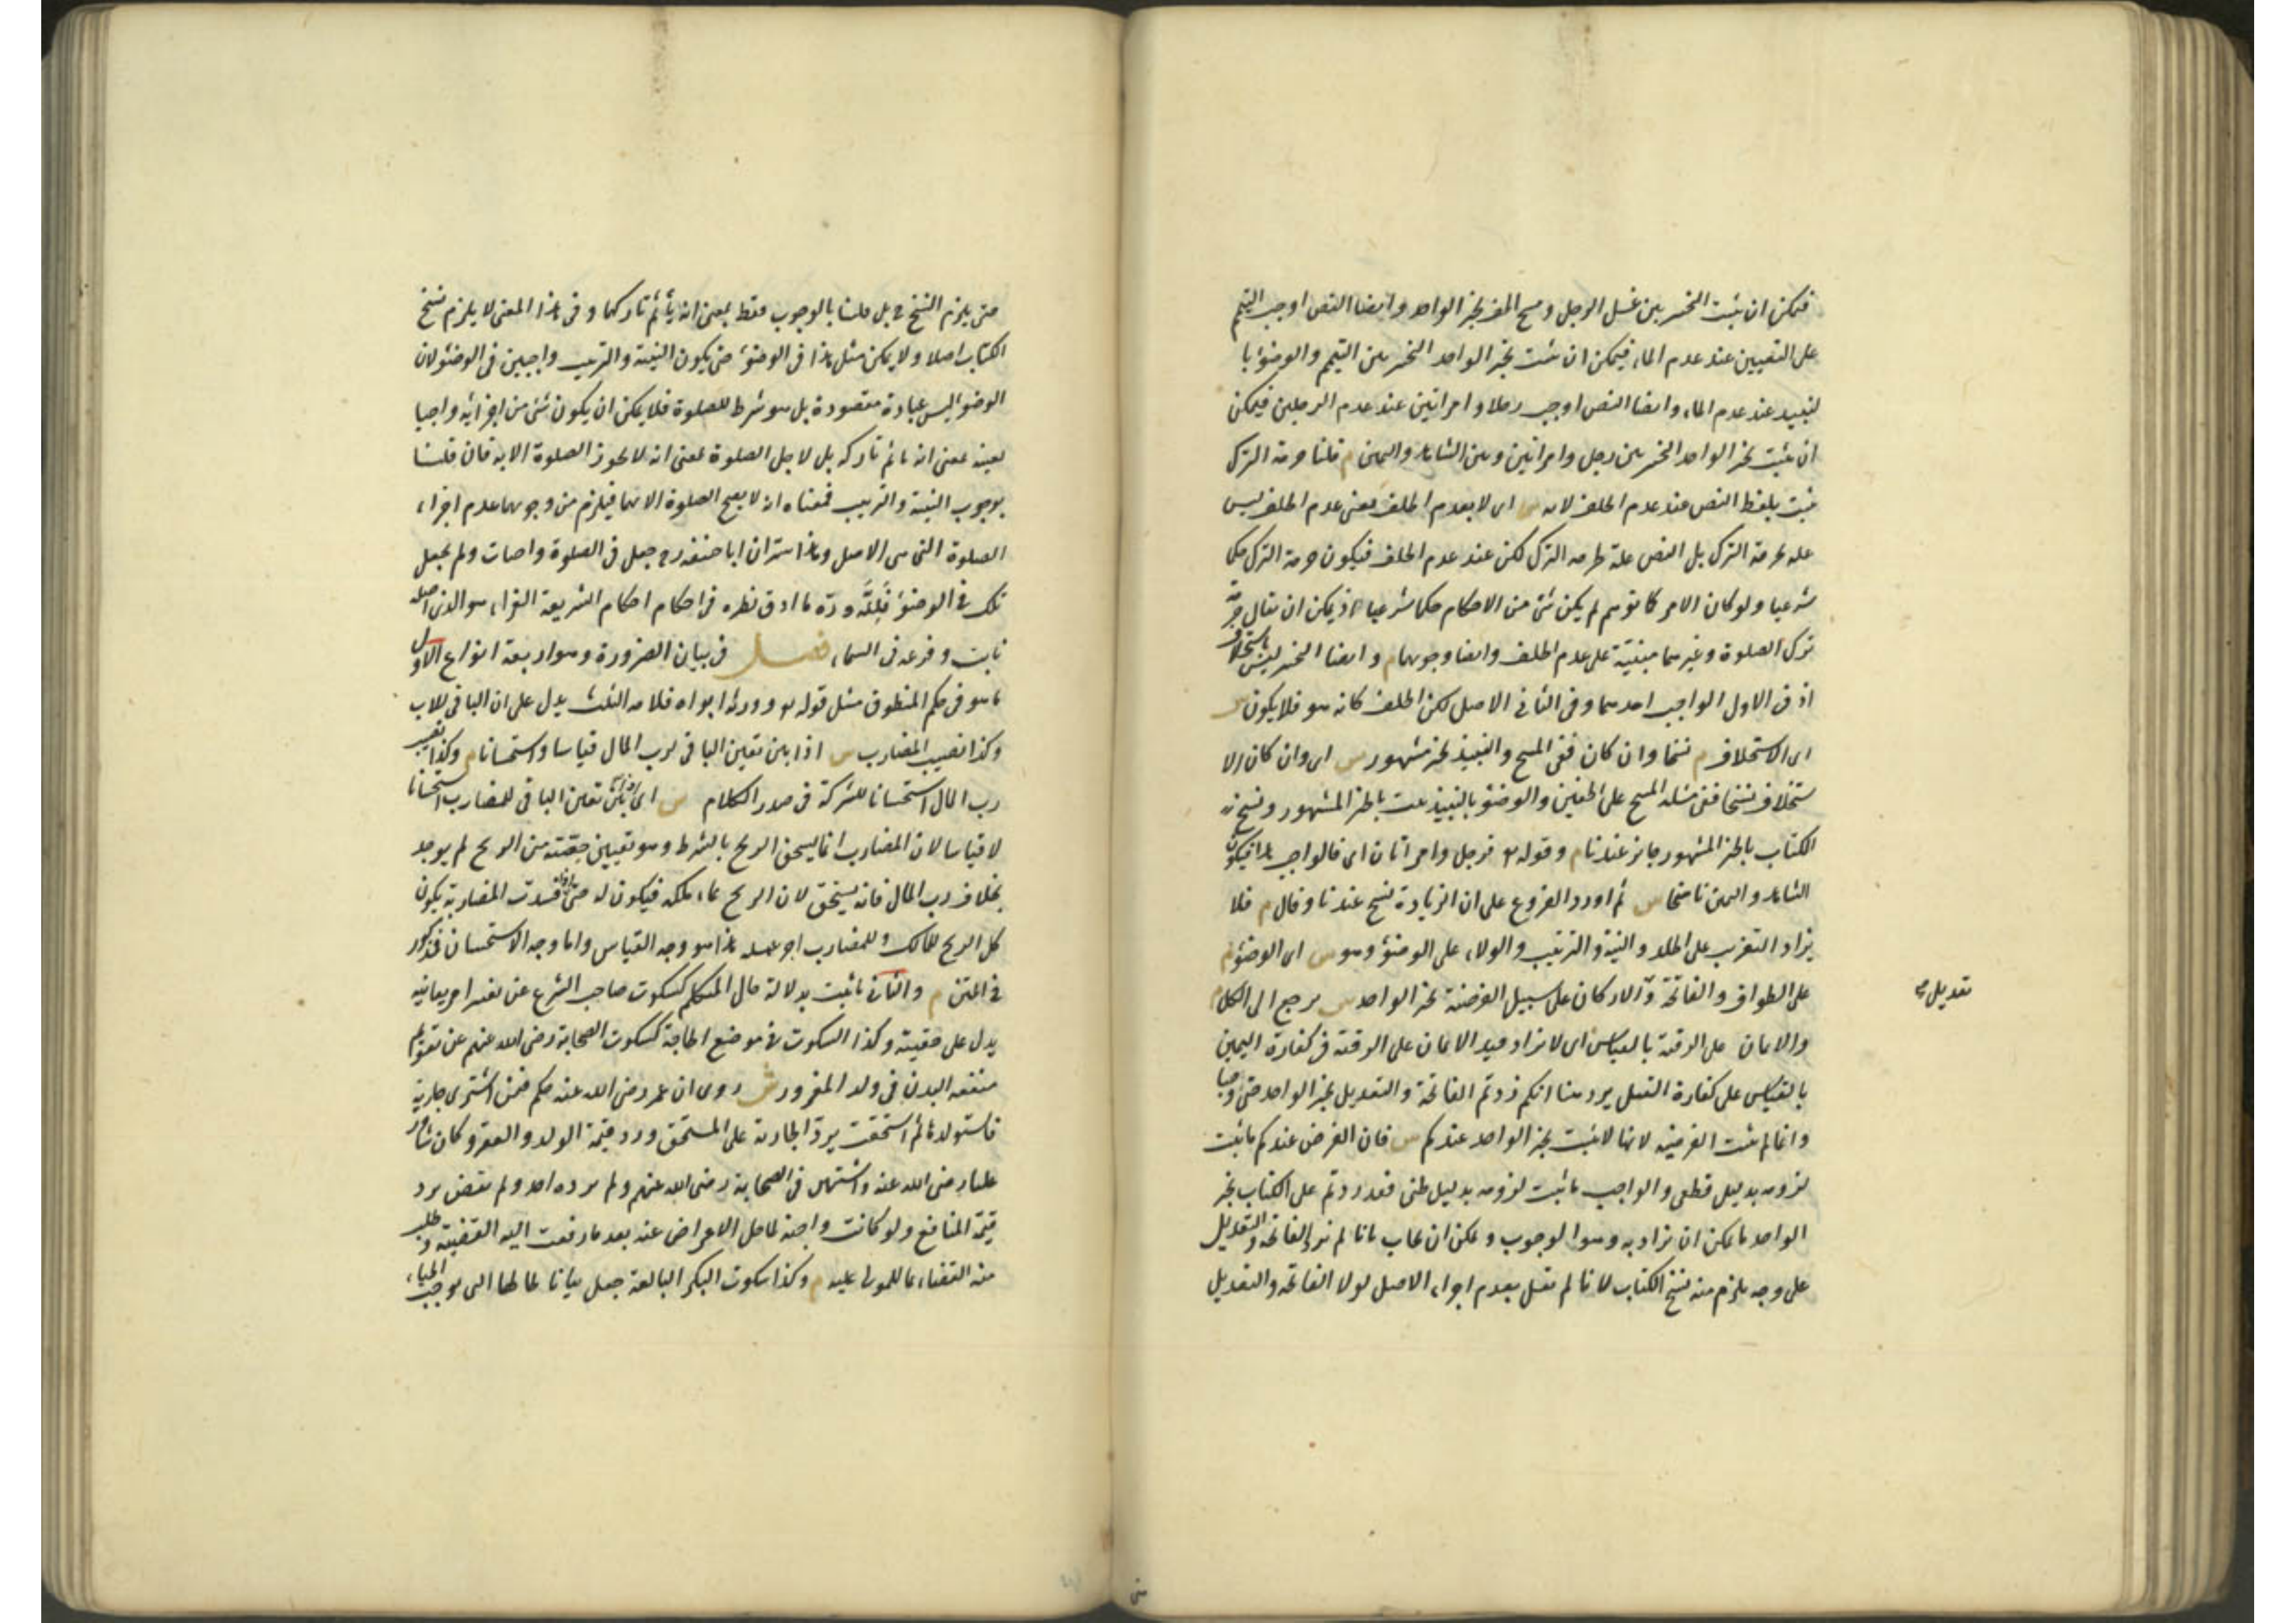 فيمكن ان يثبت التخيير بين غسل الرجل ومسح الخف بخبر الواحد وايضا النص اوجب التيمم
على التعيين عند عدم الماء فيمكن ان يثبت بخبر الواحد التخيير بين التيمم والوضوء با
لنبيذ عند عدم الماء وايضا النص اوجب رجلا وامراتين عند عدم الرجلين فيمكن
ان يثبت بخبر الواحد التخيير بين رجل وامراتين وبين الشاهد واليمين م قلنا حرمة الترك
يثبت بلفظ النص عند عدم الخلف لا به س اى لا بعدم الخلف يعنى عدم الخلف ليس
علة لحرمة الترك بل النص علة لحرمة الترك لكن عند عدم الخلف فيكون حرمة الترك حكما
شرعيا ولو كان الامر كما توهم لم يكن شئ من الاحكام حكما شرعيا اذ يمكن ان يقال حرمة
ترك الصلوة وغيرهما مبنية على عدم الخلف وايضا وجوبهما م وايضا التخيير ليس باستخلاف
اذ فى الاول الواجب احدهما وفى الثانى الاصل لكن الخلف كانه هو فلا يكون س
اى الاستخلاف م نسخا وان كان ففى المسح والنبيذ بخبر مشهور س اى وان كان الا
ستخلاف نسخا ففى مسئلة المسح على الخفين والوضوء بالنبيذ يثبت بالخبر المشهور ونسخ
الكتاب بالخبر المشهور جائز عندنا م وقوله تع فرجل وامراتان اى فالواجب هذا فيكون
الشاهد واليمين ناسخا س ثم اورد الفروع على ان الزيادة نسخ عندنا وقال م فلا
يزاد التغريب على الجلد والنية والترتيب والولاء على الوضوء وهو س اى الوضوء م
على الطواف والفاتحة و الاركان على سبيل الفرضية بخبر الواحد س يرجع الى الكل م
تعديل صح
والايمان على الرقبة بالقياس اى لا يزاد قيد الايمان على الرقبة فى كفارة اليمين
بالقياس على كفارة القتل يرد هنا انكم زدتم الفاتحة والتعديل بخبر الواحد حتى وجبا
وانما لم يثبت الفرضية لانها لا يثبت بخبر الواحد عندكم س فان الفرض عندكم ما يثبت
لزومه بدليل قطعى والواجب ما يثبت لزومه بدليل ظنى فقد زدتم على الكتاب بخبر
الواحد ما يمكن ان يزاد به وهو الوجوب ويمكن ان يجاب بانا لم نزد الفاتحة والتعديل
على وجه يلزم منه نسخ الكتاب لانا لم نقل بعدم اجزاء الاصل لولا الفاتحة والتعديل
حتى يلزم النسخ ح بل قلنا بالوجوب فقط بمعنى انه يأثم تاركها وفى هذا المعنى لا يلزم نسخ
الكتاب اصلا ولا يمكن مثل هذا فى الوضوء حتى يكون النية والترتيب واجبين فى الوضوء لان
الوضوء ليس عبادة مقصودة بل هو شرط للصلوة فلا يمكن ان يكون شئ من اجزائه واجبا
لعينه بمعنى انه ياثم تاركه بل لاجل الصلوة بمعنى انه لا يجوز الصلوة الا به فان قلنا
بوجوب النية والترتيب فمعناه انه لا يصح الصلوة الا بهما فيلزم من وجوبهما عدم اجزاء
الصلوة التى هى الاصل وهذا سر ان ابا حنيفة رح جعل فى الصلوة واجبات ولم يجعل
تلك فى الوضوء فلله دره ما ادق نظره فى احكام احكام الشريعة الغراء هو الذى اصله
ثابت وفرعه فى السماء فصل فى بيان الضرورة وهو اربعة انواع الاول
ما هو فى حكم المنطوق مثل قوله تع وورثه ابواه فلامه الثلث يدل على ان الباقى للاب
وكذا نصيب المضارب س اذا بين تعين الباقى لرب المال قياسا واستحسانا م وكذا نصيب
رب المال استحسانا للشركة فى صدر الكلام س اى اذا بين تعين الباقى للمضارب استحسانا
لا قياسا لان المضارب انما يستحق الربح بالشرط وهو تعيين حصته من الربح لم يوجد
بخلاف رب المال فانه يستحق لان الربح نماء ملكه فيكون له حتى اذا فسدت المضاربة يكون
كل الربح للمالك وللمضارب اجر عمله هذا هو وجه القياس واما وجه الاستحسان فمذكور
فى المتن م والثانى ما يثبت بدلالة حال المتكلم كسكوت صاحب الشرع عن تغيير امر يعاينه
يدل على حقيته وكذا السكوت فى موضع الحاجة كسكوت الصحابة رضى الله عنهم عن تقويم
منفعة البدن فى ولد المغرور ش روى ان عمر رضى الله عنه حكم فيمن اشترى جارية
فاستولدها ثم استحقت برد الجارية على المستحق ورد قيمة الولد والعقر وكان شاور
عليا رضى الله عنه واشتهر فى الصحابة رضى الله عنهم ولم يرده احد ولم يقض برد
قيمة المنافع ولو كانت واجبة لما حل الاعراض عنه بعد ما رفعت اليه القضية وطلب
منه القضاء بما للمولى عليه م وكذا سكوت البكر البالغة جعل بيانا لحالها التى توجب الحياء